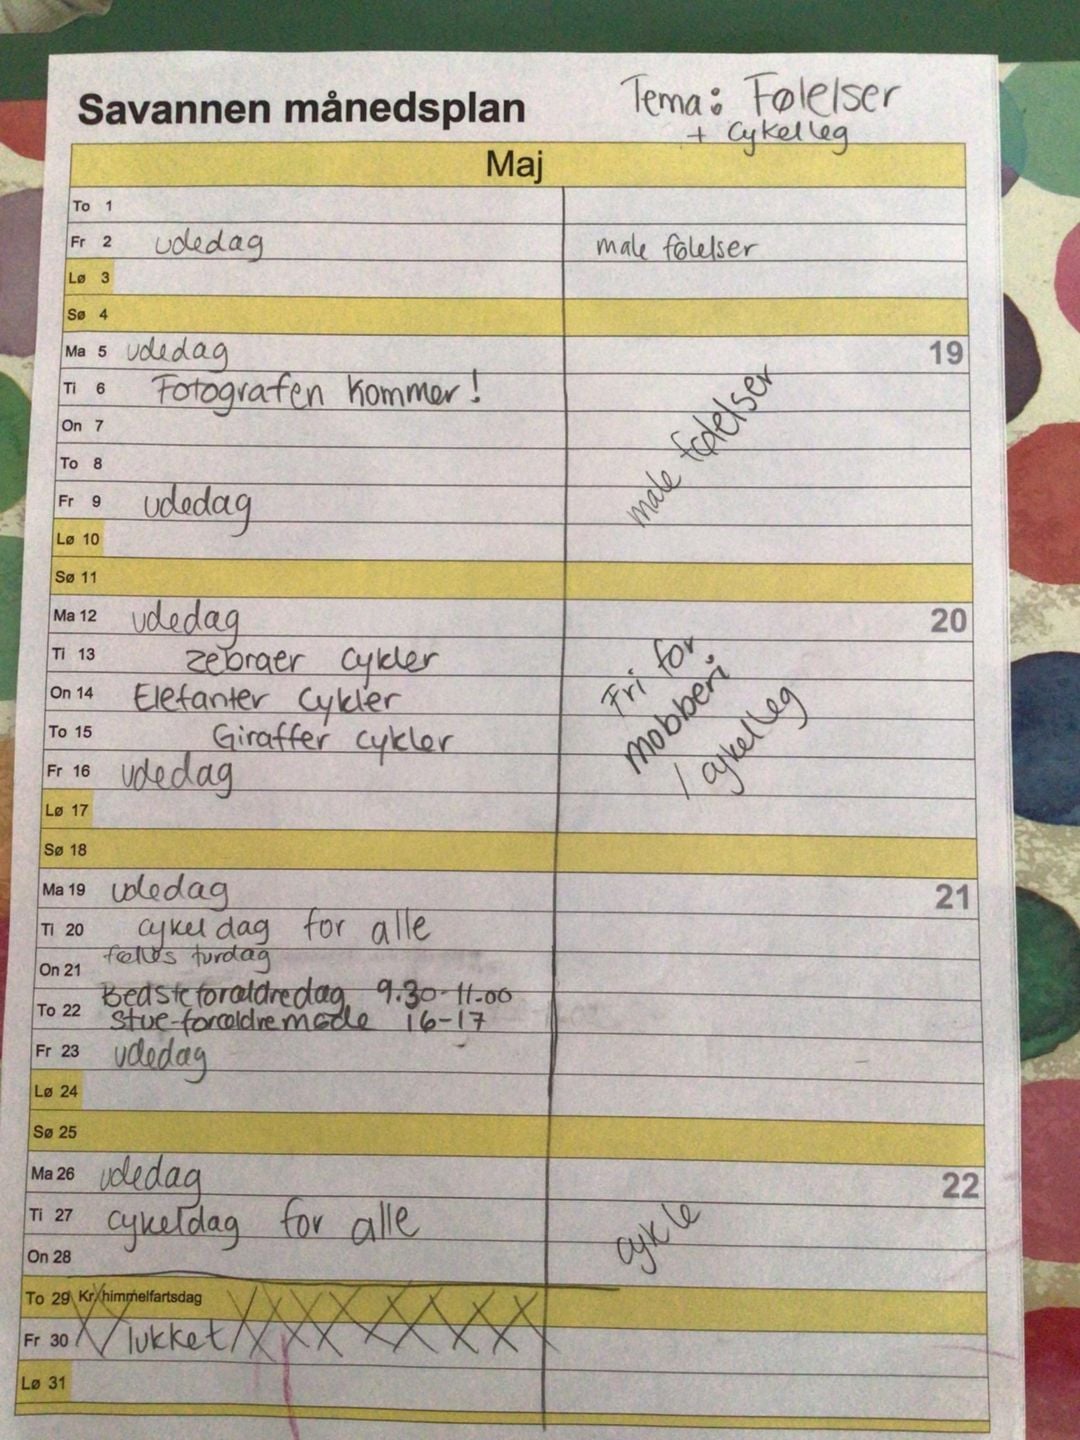 Savannen månedsplan
Tema: Følelser
+ Cykelleg
Maj
To 1
Fr 2 udedag male følelser
Lø 3
Sø 4
Ma 5 udedag 19
Ti 6 Fotografen kommer!
On 7
To 8
male følelser
Fr 9 udedag
Lø 10
Sø 11
Ma 12 udedag 20
Ti 13 zebraer cykler
On 14 Elefanter cykler
To 15 Giraffer cykler
Fri for
mobberi
/ cykelleg
Fr 16 udedag
Lø 17
Sø 18
Ma 19 udedag 21
Ti 20 cykeldag for alle
On 21 fælles turdag
To 22 Bedsteforældredag 9.30-11.00
Stue-forældremøde 16-17
Fr 23 udedag
Lø 24
Sø 25
Ma 26 udedag 22
Ti 27 cykeldag for alle
cykle
On 28
To 29 Kr himmelfartsdag
Fr 30 lukket
Lø 31